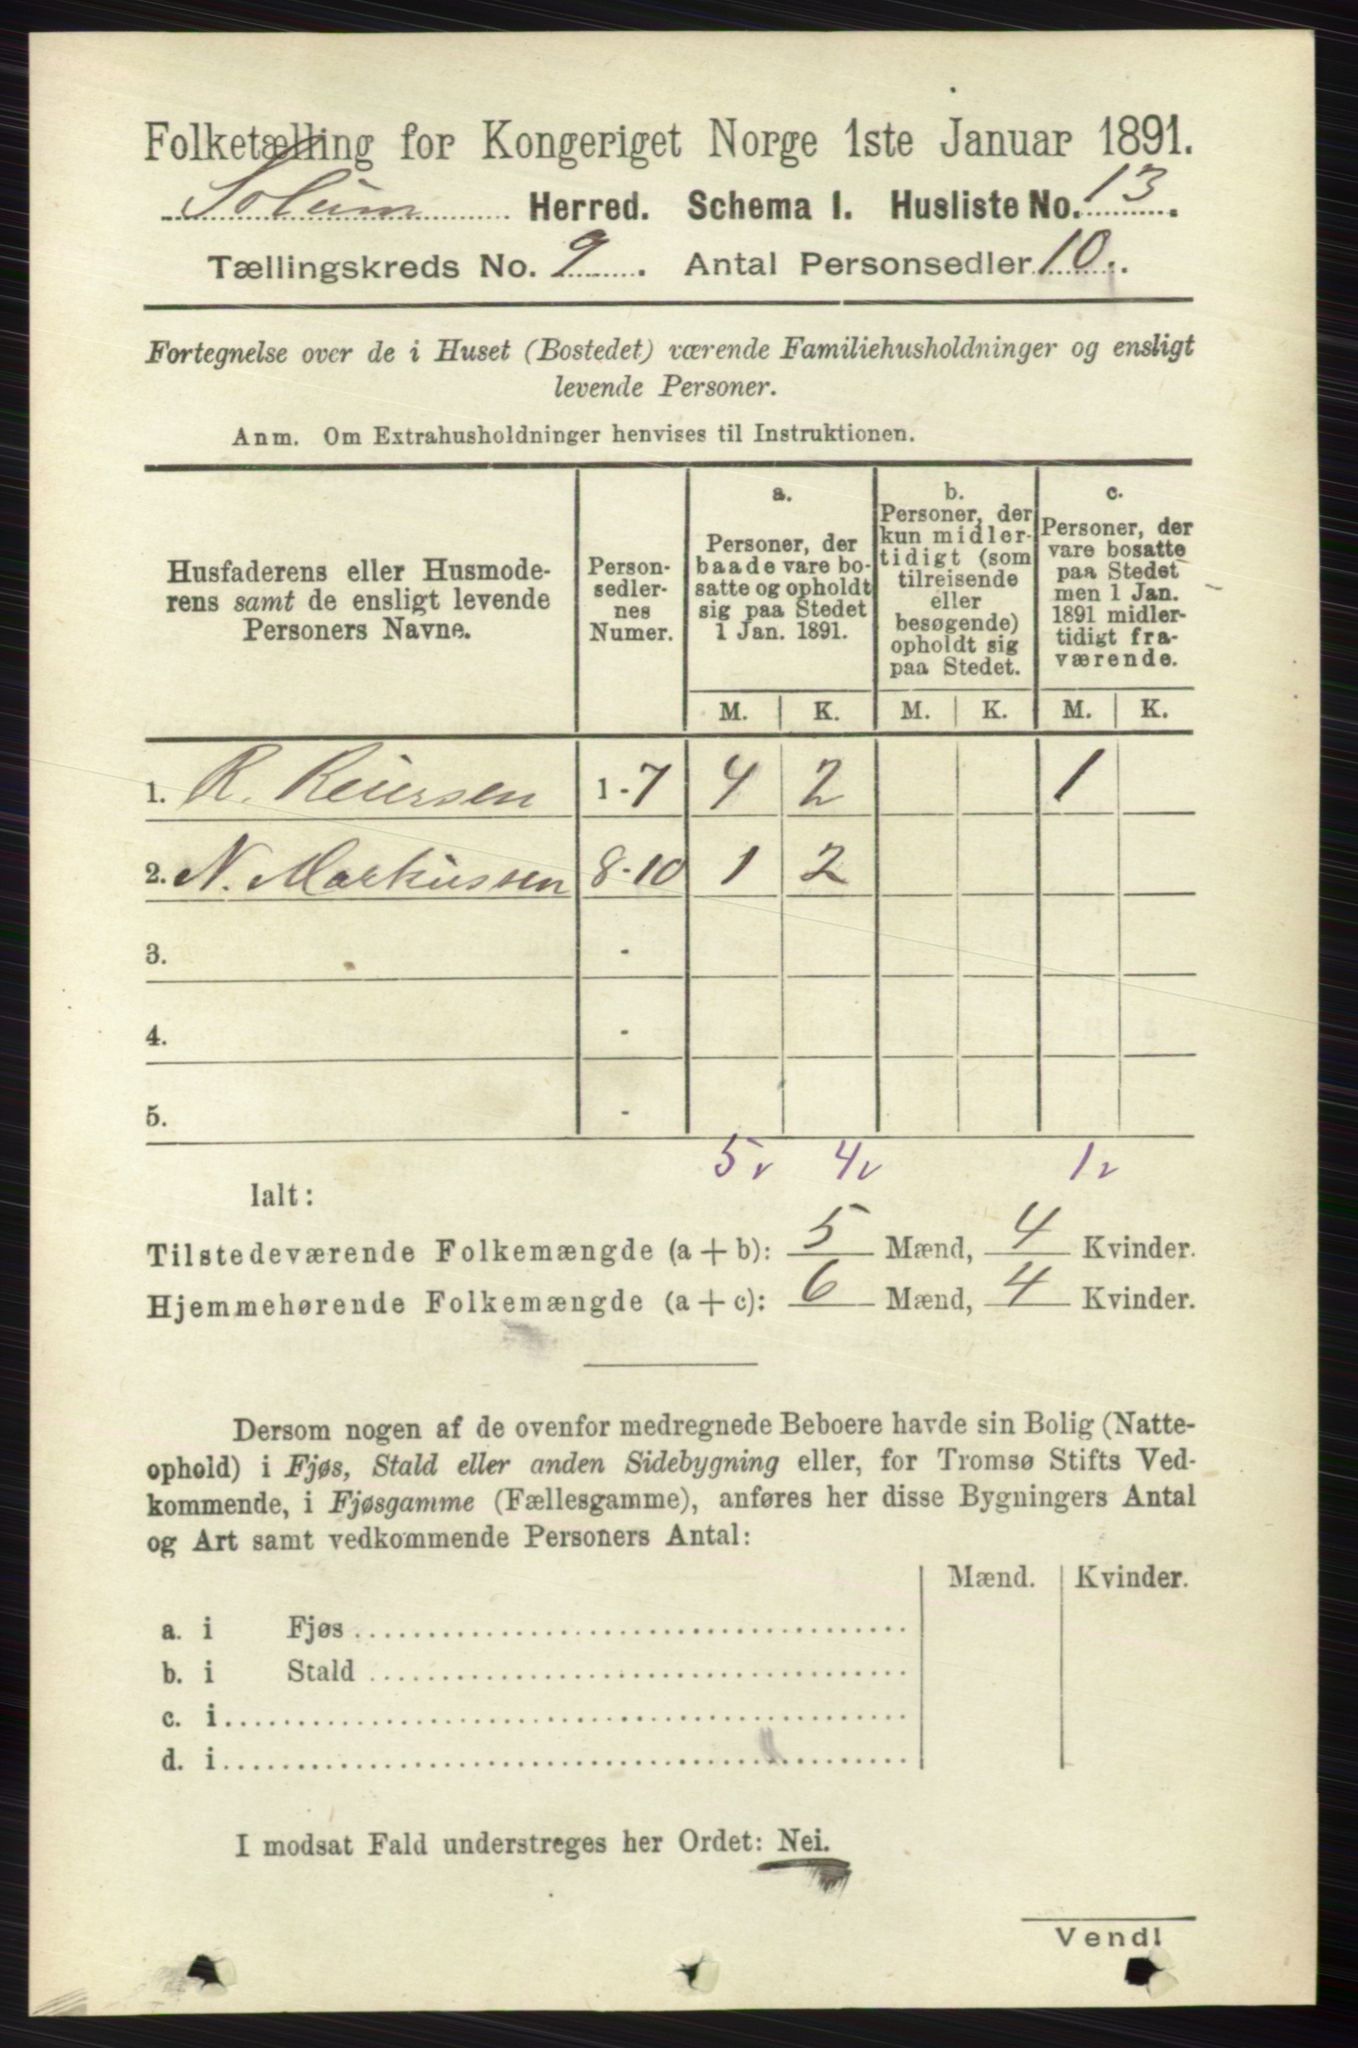 Folketælling for Kongeriget Norge 1ste Januar 1891.
Solum Herred. Schema 1. Husliste No. 13.
Tællingskreds No. 9. Antal Personsedler 10.
Fortegnelse over de i Huset (Bostedet) værende Familiehusholdninger og ensligt
levende Personer.
Anm. Om Extrahusholdninger henvises til Instruktionen.
Husfaderens eller Husmode-
rens samt de ensligt levende
Personers Navne.
Person-
sedler-
nes
Numer.
a.
Personer, der
baade vare bo-
satte og opholdt
sig paa Stedet
1 Jan. 1891.
b.
Personer, der
kun midler-
tidigt (som
tilreisende
eller
besøgende)
opholdt sig
paa Stedet.
c.
Personer, der
vare bosatte
paa Stedet
men 1 Jan.
1891 midler-
tidigt fra-
værende.
M. K. M. K. M. K.
1. R. Reiersen 1-7 4 2 1
2. N. Markussen 8-10 1 2
3. -
4. -
5. -
5v 4v 1v
Ialt:
Tilstedeværende Folkemængde (a + b): 5 Mænd, 4 Kvinder.
Hjemmehørende Folkemængde (a + c): 6 Mænd, 4 Kvinder.
Dersom nogen af de ovenfor medregnede Beboere havde sin Bolig (Natte-
ophold) i Fjøs, Stald eller anden Sidebygning eller, for Tromsø Stifts Ved-
kommende, i Fjøsgamme (Fællesgamme), anføres her disse Bygningers Antal
og Art samt vedkommende Personers Antal:
Mænd. Kvinder.
a. i Fjøs
b. i Stald
c. i
d. i
I modsat Fald understreges her Ordet: Nei.
Vend!